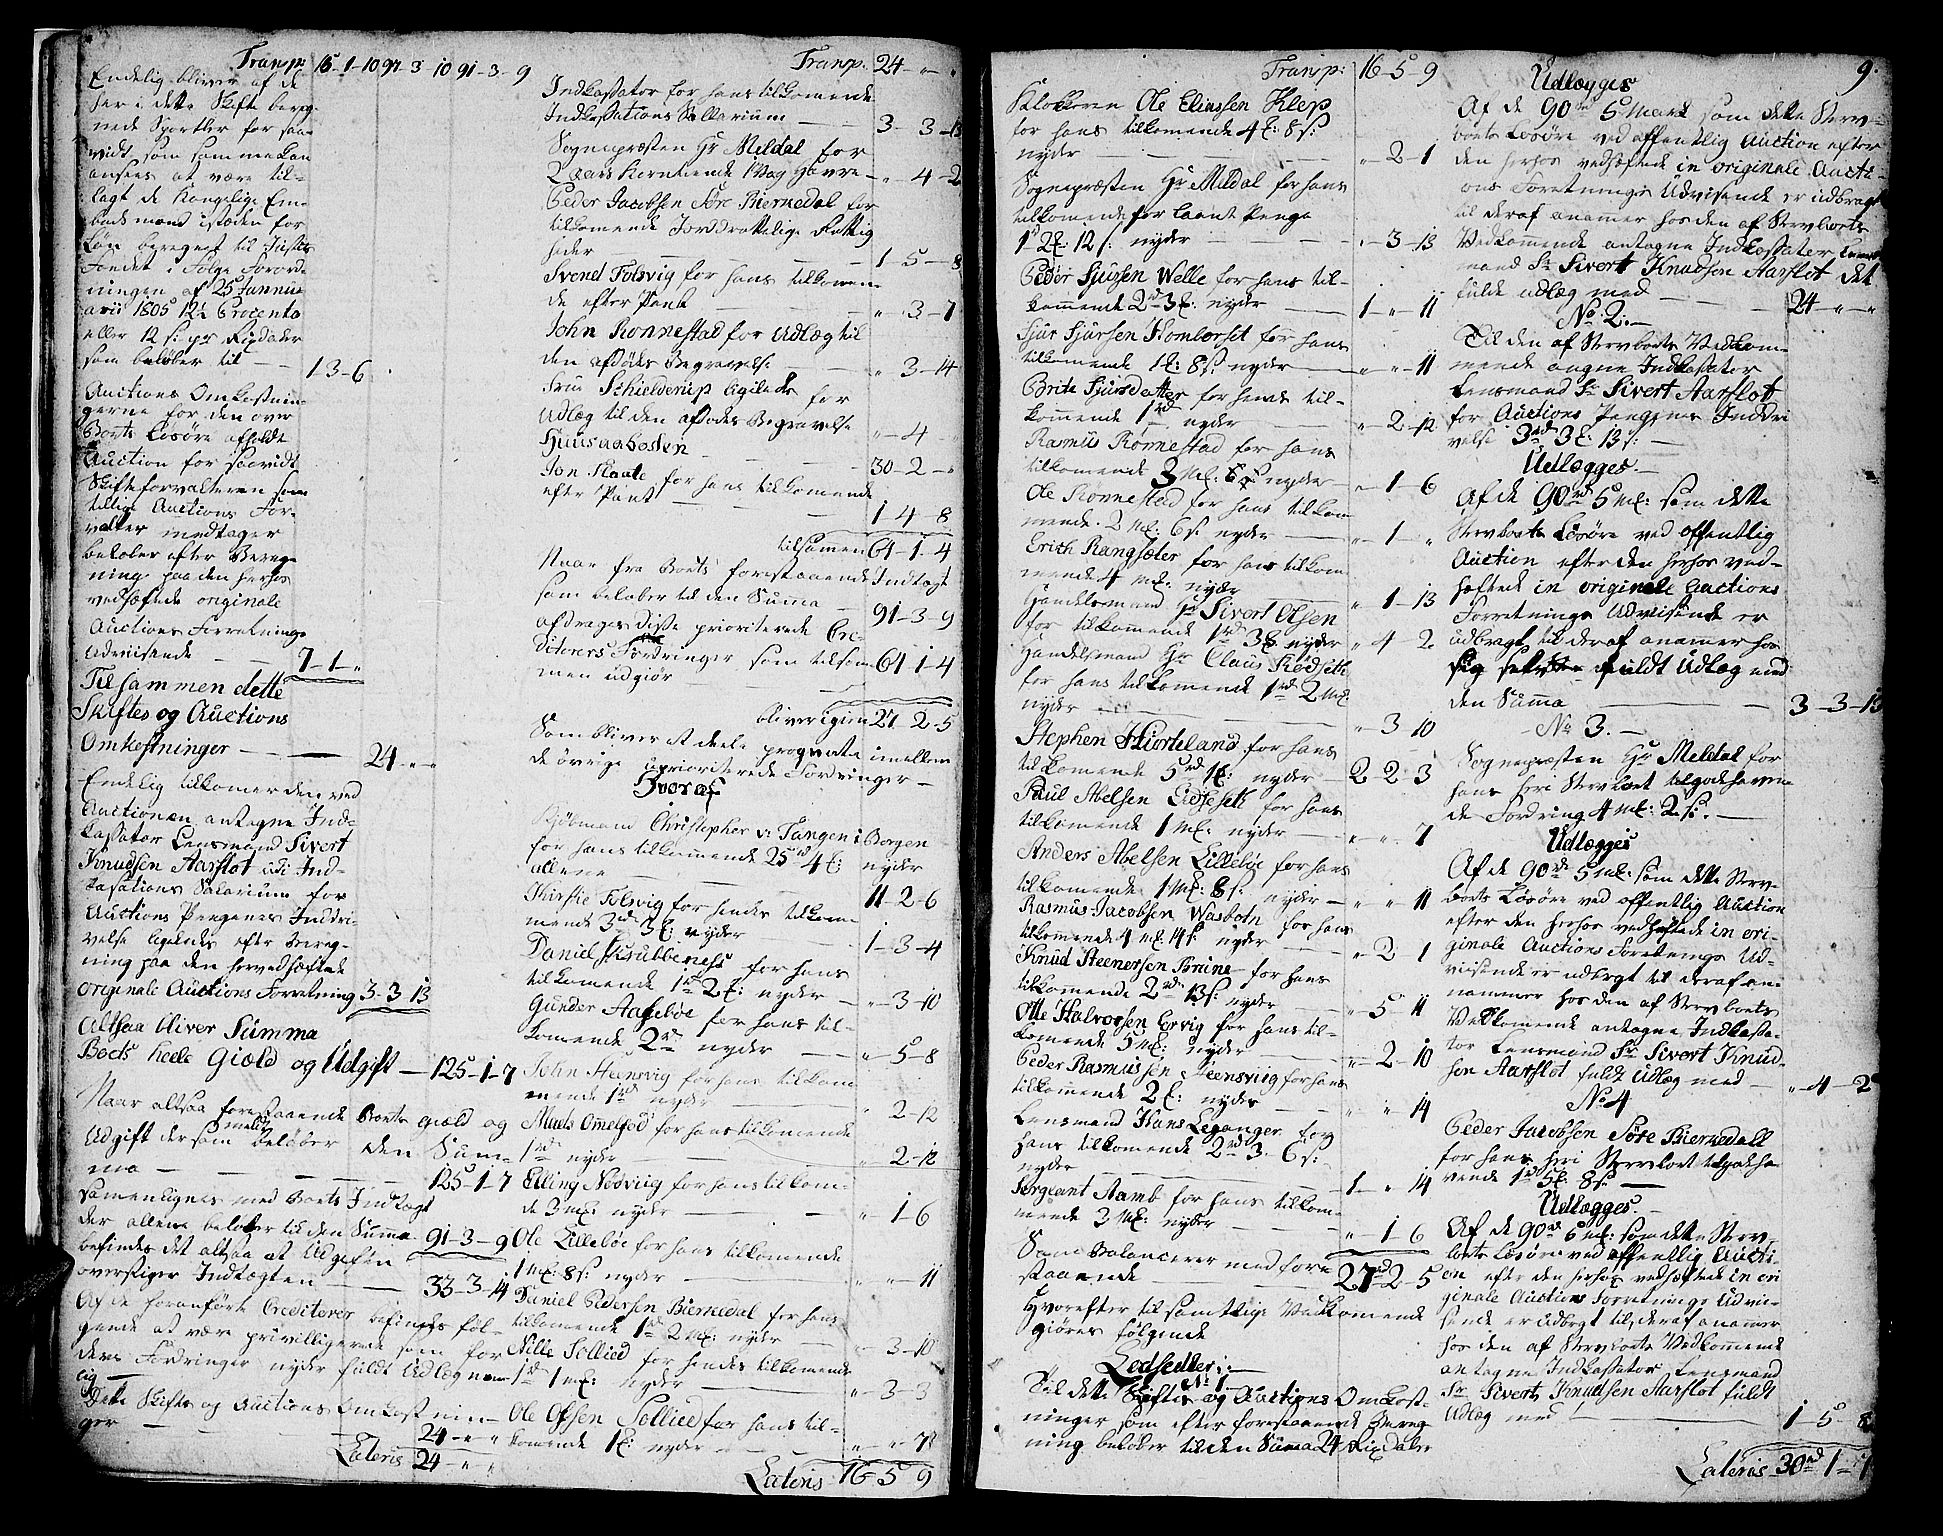 Transp: 15-1-10 97-3 10 91-3-9
Endelig bliver af de
her i dette Skifte bereg-
nede Sportler for saa-
vidt som sammes kan
ansees at være til-
lagt de Kongelige Em-
bedsmænd istæden for
Løn beregnet til Justits
Fondet i Følge Forord-
ningen af 25 Janu-
arii 1805 12½ Procento
eller 12 s: pr Rigsdaler
som beløber til — 1 3-6
Auctions Omkostnin-
gerne for den over
Boets Løsøre afholdte
Auction for saavidt
Skifteforvalteren som
tillige Auctions For-
valter modtager
beløber efter Bereg-
ning paa den herhos
vedhæftede originale
Auctions Forretnings
Udviisende — 7-1-"
Tilsammen dette
Skiftes og Auctions
Omkostninger — 24-"-"
Endelig tilkommer den ved
Auctionen antagne Ind-
kassator Lensmand Sivert
Knudsen Aarflot udi Ind-
kasations Salarium for
Auctions Pengenes Inddri-
velse ligeledes efter Bereg-
ning paa den hervedhæftede
originale Auctions Forretning 3-3 13
Altsaa bliver Summa
Boets heele Giæld og Udgift — 125-1-7
Naar altsaa forestaaende Boets giæld og
Udgift der som meldt beløber den Sum-
ma — 125-1-7
samenlignes med Boets Indtægt
der allene beløber til den Summa 91-3-9
befindes det altsaa at Udgiften
overstiger Indtægten — 33-3-14
Af de foranførte Creditorer befindes føl-
gende at være privilligerede som for
deres Fordringer nyder fuldt Udlæg nem-
lig
Dette Skiftes og Auctions Omkostnin-
ger — 24-"-"
Lateris 24-"-"
Transp: 24-"-"
Indkassator for hans tilkommende
Indkassations Sallarium — 3-3-13
Sognepræsten Hr Meldal for
2 Aars Korntiende 1 Vog Havre — "-4-2
Peder Jacobsen Søre Biernedal for
tilkommende Jorddrottelige Rettig
heder — 1-5-8
Svend Folsvig for hans tilkommen-
de efter Pant — "-3-7
John Rønnestad for Udlæg til
den afdødes Begravelse — "-3-14
Frue Schielderup ligeledes for
Udlæg til den afdødes Begravelse "-4-
Huusaaboden — 30-2-"
Jon Skaate for hans tilkommende
efter Pant — 1-4-8
tilsamen 64-1-4
Naar fra Boets forestaaende Indtægt
som beløber til den Summa — 91-3-9
afdrages Disse prioriterede Cre-
ditorers Fordringer som tilsam-
men udgiør — 64 1-4
bliver igien 27-2-5
Som bliver at deele proqvota imellem
de øvrige uprioriterede Fordringer —
Hvoraf
Kjøbmand Christopher v: Tangen i Bergen
for hans tilkommende 25rd 4 X: nyder
allene — 11-2-6
Kirstie Folsvig for hendes tilkom-
mende 3rd 3 X: nyder — 1-3-4
Daniel Skrubbenæss for hans
tilkommende 1rd 2 X: nyder — "-3-10
Gunder Aasebøe for hans til-
komende 2rd nyder — "-5-8
John Heensvig for hans tilkom
mende 1rd nyder — " 2-12
Maads Omelfod for hans tilkommende
1rd nyder — " 2-12
Elling Nødviig for hans tilkom-
de 3 mk: nyder — " 1-6
Ole Lillebøe for hans tilkommende
1 mk: 8 s: nyder — " " 11
Daniel Pedersen Bierredal for hans
tilkommende 1rd 2 mk: nyder — " 3-10
Nille Sollied for hendes tilkommende
1rd 1 mk: nyder — " 3-3
Ole Olsen Sollied for hans til-
komende 1 X: nyder — " " 7½
Lateris 16-5 9
Transp: 16-5-9
Klokkeren Ole Eliassen Klep
for hans tilkomende 4 X: 8 s:
nyder — "-2-1
Sognepræsten Hr Meldal for hans
tilkomende for laant Penge
1rd 2 X: 12 s: nyder — "-3-13
Peder Sjursen Welle for hans til-
kommende 2rd 3 X: nyder — 1-"-11
Sjur Sjursen Homberset for hans
tilkommende 1 X: 8 s: nyder — "-"-11
Brite Sjursdatter for hends til-
kommende 1rd nyder — "-2-12
Rasmus Rønnestad for hans
tilkommende 3 mk: nyder — "-1-6
Ole Rønnestad for hans tilkom
mende 2 mk: 6 s: nyder — "-1-"
Erich Rangsæter for hans tilkom-
mende 4 mk: nyder — " 1-13
Handelsmand Hr Sivert Olsen
for tilkommende 1rd 3 X nyder " 4-2
Handelsmand Hr Claus Rødseth
for hans tilkommende 1rd 2 mk
nyder — " 3-10
Stephen Hiorteland for hans
tilkomende 5rd 1 X: nyder — 2-2-3
Paul Abelsen Lidseseth for hans
tilkomende 1 mk: nyder — " " 7
Anders Abelsen Lillebøe for hans
tilkomende 1 mk: 8 s: nyder — " " 11
Rasmus Jacobsen Wasbotn for hans
tilkomende 4 mk: 14 s: nyder — " 2 1
Knud Steenersen Brune for hans
tilkomende 2rd 13 s: nyder — " 5 11
Otte Halvorsen Ervig for hans til-
komende 5 mk: nyder — "-2-10
Peder Rasmussen Heensviig for hans
tilkommende 2 X: nyder — " " 14
Lensmand Hans Leganger for
hans tilkommende 2rd 3. 6 s:
nyder — 1-" 14
Sergeant Aamb for hans tilkom-
mende 3 mk: nyder — "-1-6
Som Balancerer med fore
staaende — 27rd 2-5
Hvorefter til samtlige Vedkomende
giøres følgende
Lodsedler:—
No 1
Til dette Skiftes og Auctions Omkost-
ninger som efter forestaaende Bereg
ning beløber til den Summa 24 Rigsdaler
9.
Udlægges
Af de 90rd 5 Mark som dette Sterv-
boets Løsøre ved offentlig Auction efter
den herhos vedhæftede in originale Aucti-
ons Foretnings Udvisende er udbragt
til deraf anamer hos den af Stervboets
Vedkommende antagne Indkassator Lens-
mand Sr Sivert Knudsen Aarflot det
fulde udlæg med — 24-"-"
No 2.—
Til den af Stervboets Vedkom-
mende angne Indkassator
Lensmand Sr Sivert Aarflot
for Auctions Pengenes Inddri
velse 3rd 3 X: 13 s: —
Udlægges.—
Af de 90rd 5 mk: som dette
Stervboets Løsøre ved offentlig
Auction efter den herhos ved-
hæftede in originale Auctions
Forretnings Udviisende er
udbragt til deraf anamer hos
sig selv fuldt Udlæg med
den Summa — 3-3-13
No 3.—
Sognepræsten Hr Meldal for
hans heri Stervboet tilgodehaven
de Fordring 4 mk: 2 s: —
Udlægges
Af de 90rd 5 mk: som dette Sterv-
boets Løsøre ved offentlig Auction
efter den herhos vedhæftede in ori-
ginale Auctions Foretnings Ud-
viisende er udbragt til deraf an-
nammer hos den af Stervboets
Vedkommende antagne Indkassa-
tor Lensmand Sr Sivert Knud-
sen Aarflot fuldt Udlæg med — "-4-2
No 4
Peder Jacobsen Søre Bierredall
for hans heri Stervboet tilgodeha-
vende 1rd 5 X: 8 s: —
Udlægges.—
Af de 90rd 5 mk: som dette Sterv-
boets Løsøre ved offentlig Aucti-
on efter den herhos vedhæftede in ori
ginale Auctions Foretnings Udvii-
sende er udbragt til, deraf anamer
hos den af Stervboets Vedkommende
antagne Indkassator Lensmand
Sr Siverts Knudsen Aarflot fuldt
Udlæg med — 1-5-8
Lateris 30rd 1-7